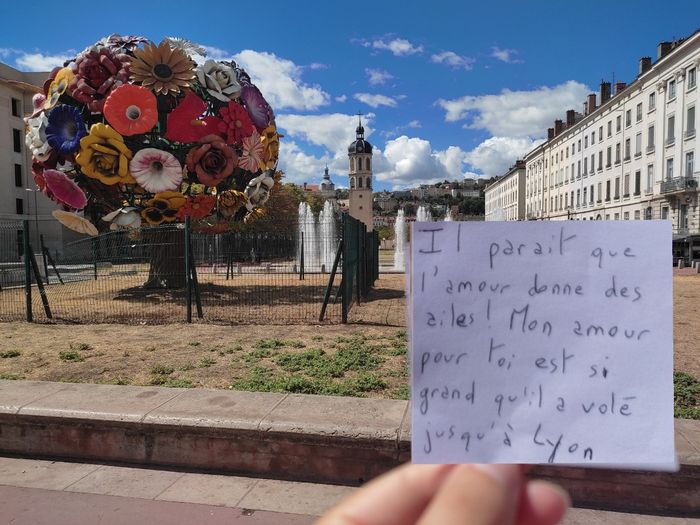 Il parait que
l'amour donne des
ailes! Mon amour
pour toi est si
grand qu'il a volé
jusqu'à Lyon